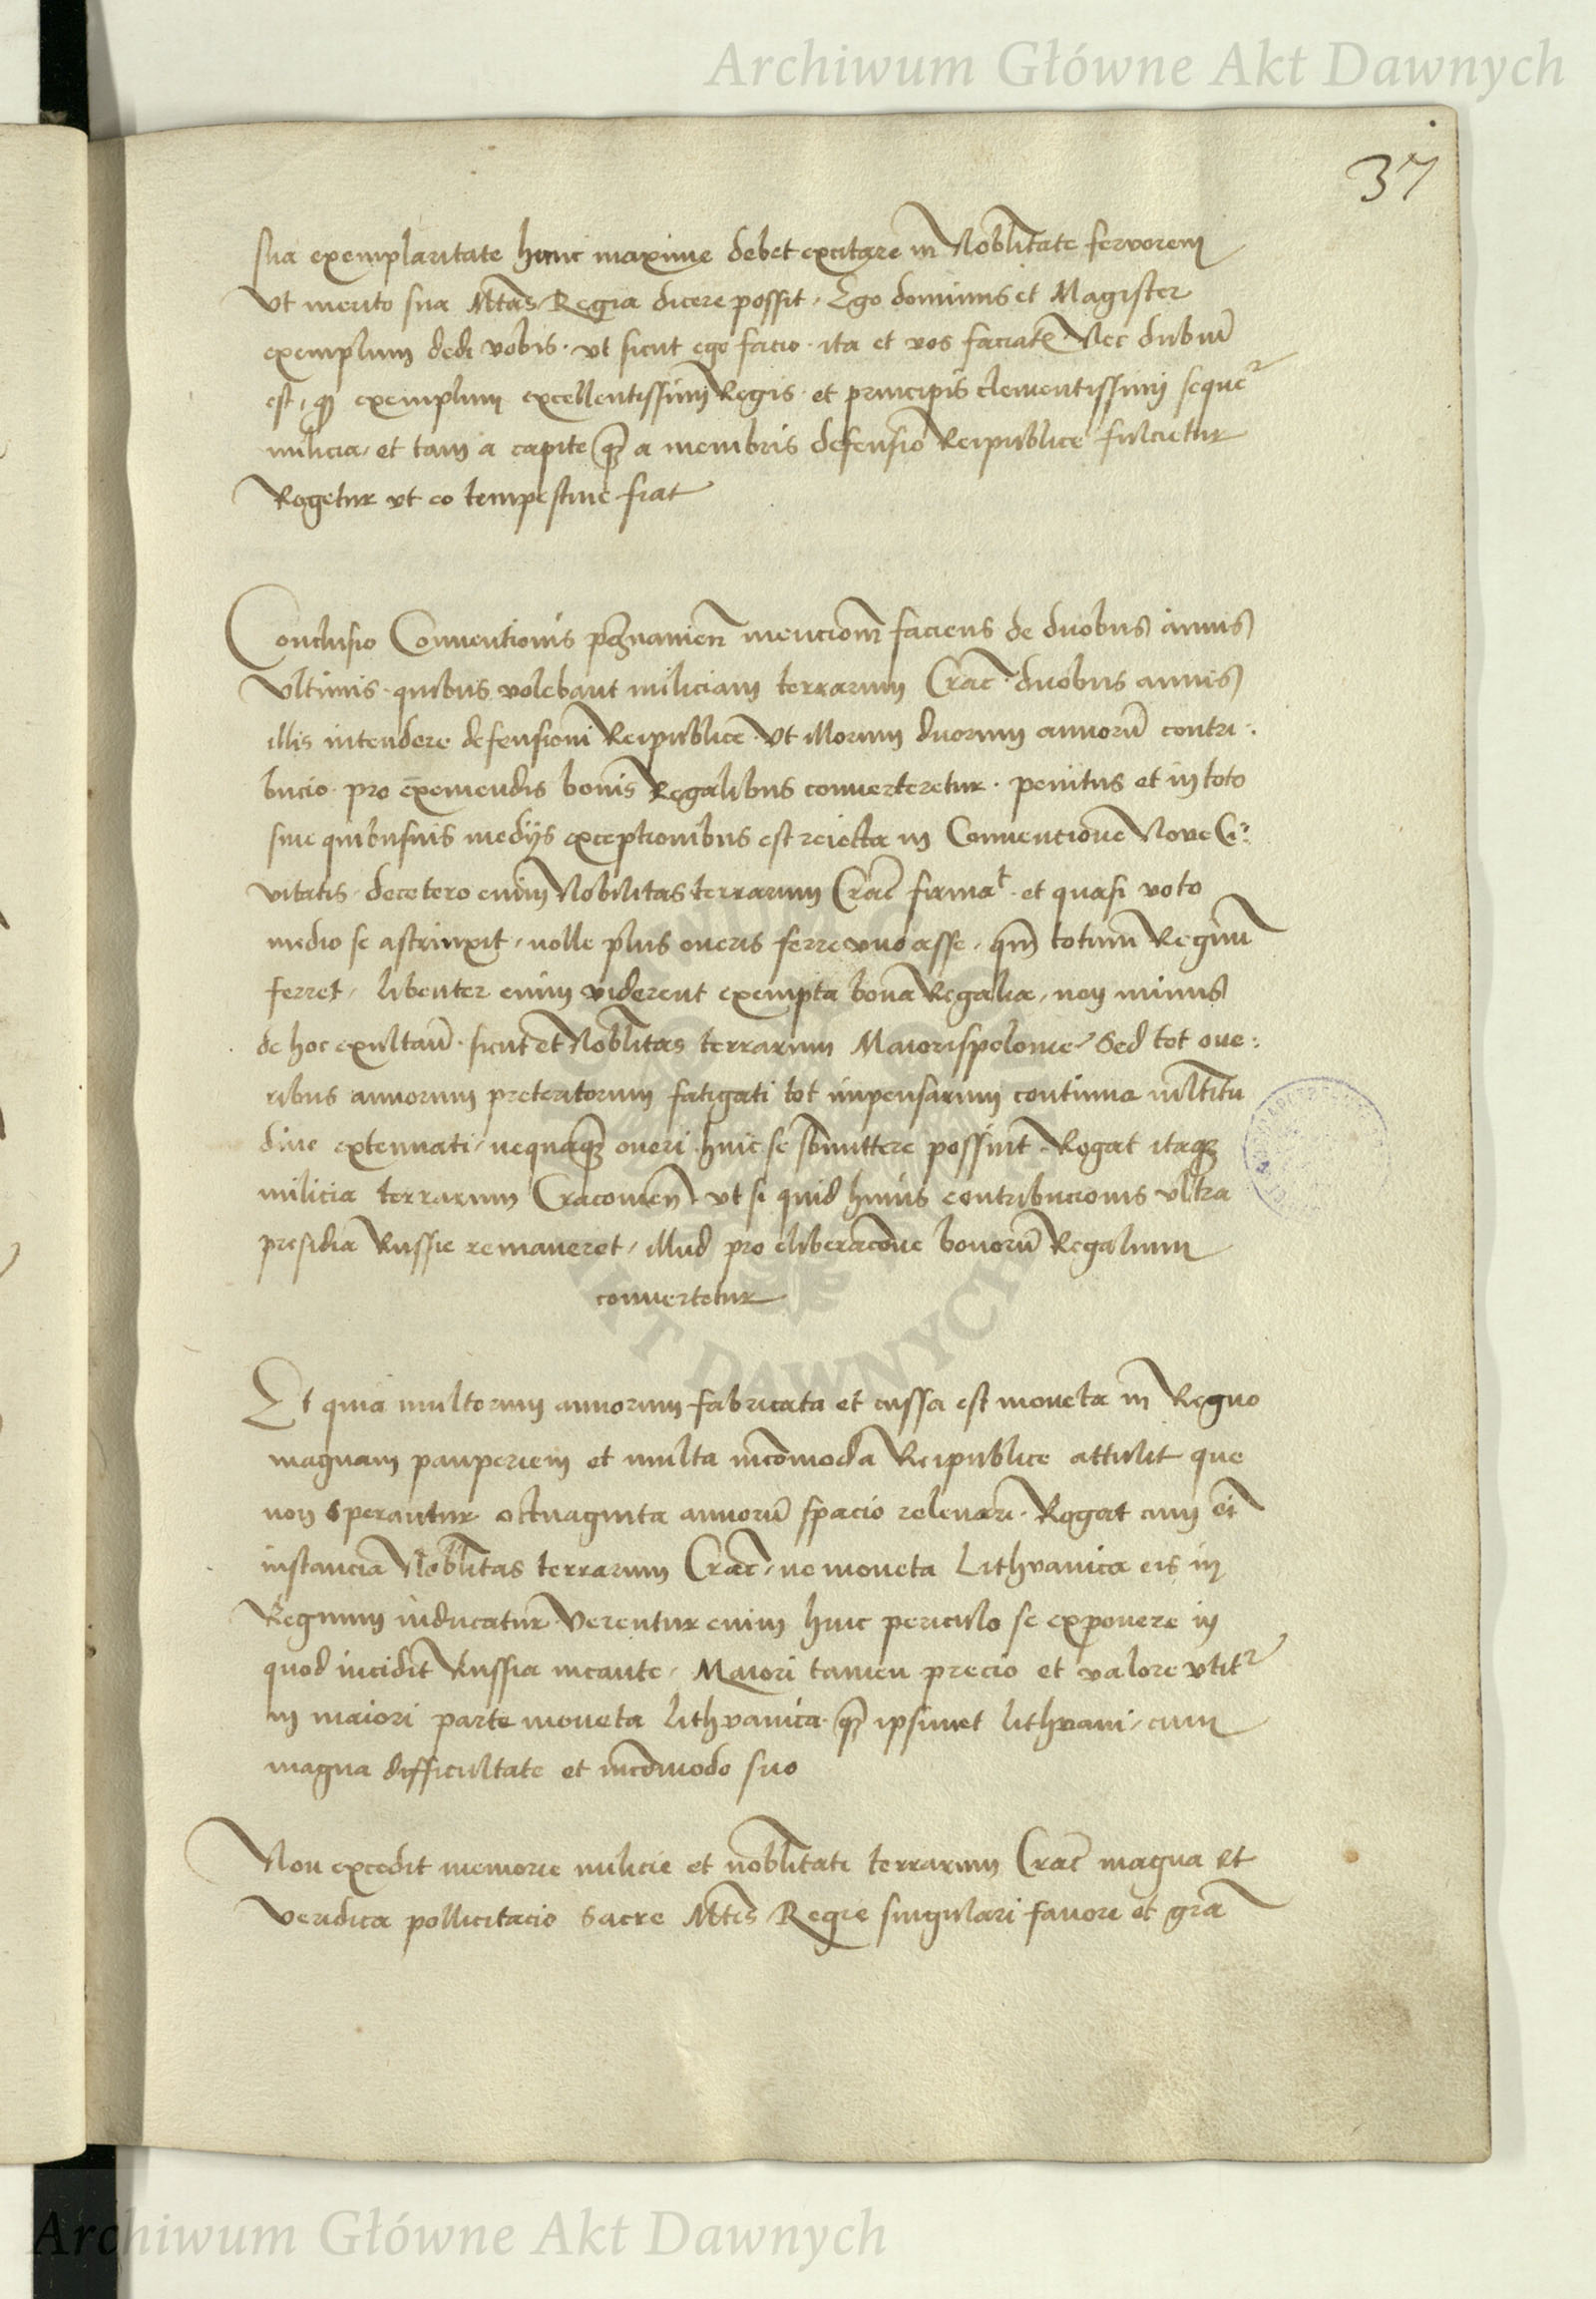 Archiwum Główne Akt Dawnych
37
sua exemplaritate hunc maxime debet excitare in Nobłitate fervorem
Vt merito sua Mtas Regia dicere possit, Ego dominus et Magister
exemplum dedi vobis. vt sicut ego facio. ita et vos faciatꝭ Nec dubiū
est, qꝫ exemplum excellentissimi Regis. et principis clementissimi sequet᷑
milicia, et tam a capite qꝫ̄ a membris defensio Reipublice fulcietur
Rogetur vt eo tempestiue fiat
Conclusio Conuentionis poʒnanien̄ mencionē faciens de duobus annis
Vltimis. quibus volebant miliciam terrarum Crac̄. duobus annis
illis intendere defensioni Reipublice. Vt illorum duorum annorū contri:
bucio. pro exemendis bonis Regalibus conuerteretur. penitus et in toto
siue quibusuis medijs exceptionibus est reiecta in Conuencione Noue Ci:
vitatis. decetero enim Nobilitas terrarum Crac̄ firmaᵗ. et quasi voto
medio se astrinxit, nolle plus oneris ferre vno asse, qm̄ totum Regnū
ferret, libenter enim viderent exempta bona Regalia, non minus
de hoc exultarēt. sicut et Nobłitas terrarum Maiorispolonie, Sed tot one:
ribus annorum preteritorum fatigati tot impensarum continua multitu
dine extenuati, nequaqꝫ̄ oneri huic se sb̄mittere possunt. Rogat itaqꝫ
milicia terrarum Cracouien̄. vt si quid huius contribucionis vltra
presidia Russie remaneret, illud pro eliberacōne bonorū Regalium
conuertetur
Et quia multorum annorum fabricata et cussa est moneta in Regno
magnam pauperiem et multa incōmoda Reipublice attulit que
non sperantur octuaginta annorū spacio releuari. Rogat cum ea
instancia Nobłitas terrarum Crac̄, ne moneta Lithvanica eis in
Regnum inducatur. Verentur enim huic periculo se exponere in
quod incidit Russia incaute, Maiori tamen precio et valore vtit᷑
in maiori parte moneta lithvanica. qꝫ̄ ipsimet lithvani, cum
magna difficultate et incōmodo suo
Non excedit memorie milicie et nobłitati terrarum Crac̄ magna et
veridica pollicitacio Sacre Mtis Regie singulari fauore et grā
AKT DAWNYCH
Archiwum Główne Akt Dawnych